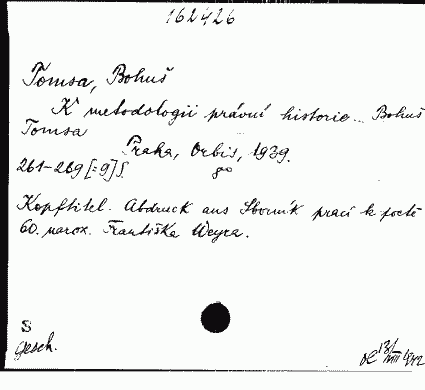 162426
Tomsa, Bohuš
K metodologii právní historie... Bohuš
Tomsa
Praha, Orbis, 1939.
261-269 [=9] S. go
Kopftitel. Abdruck aus Sborník prací k poctě
60. narox. Františka Weyra.
S
gesch.